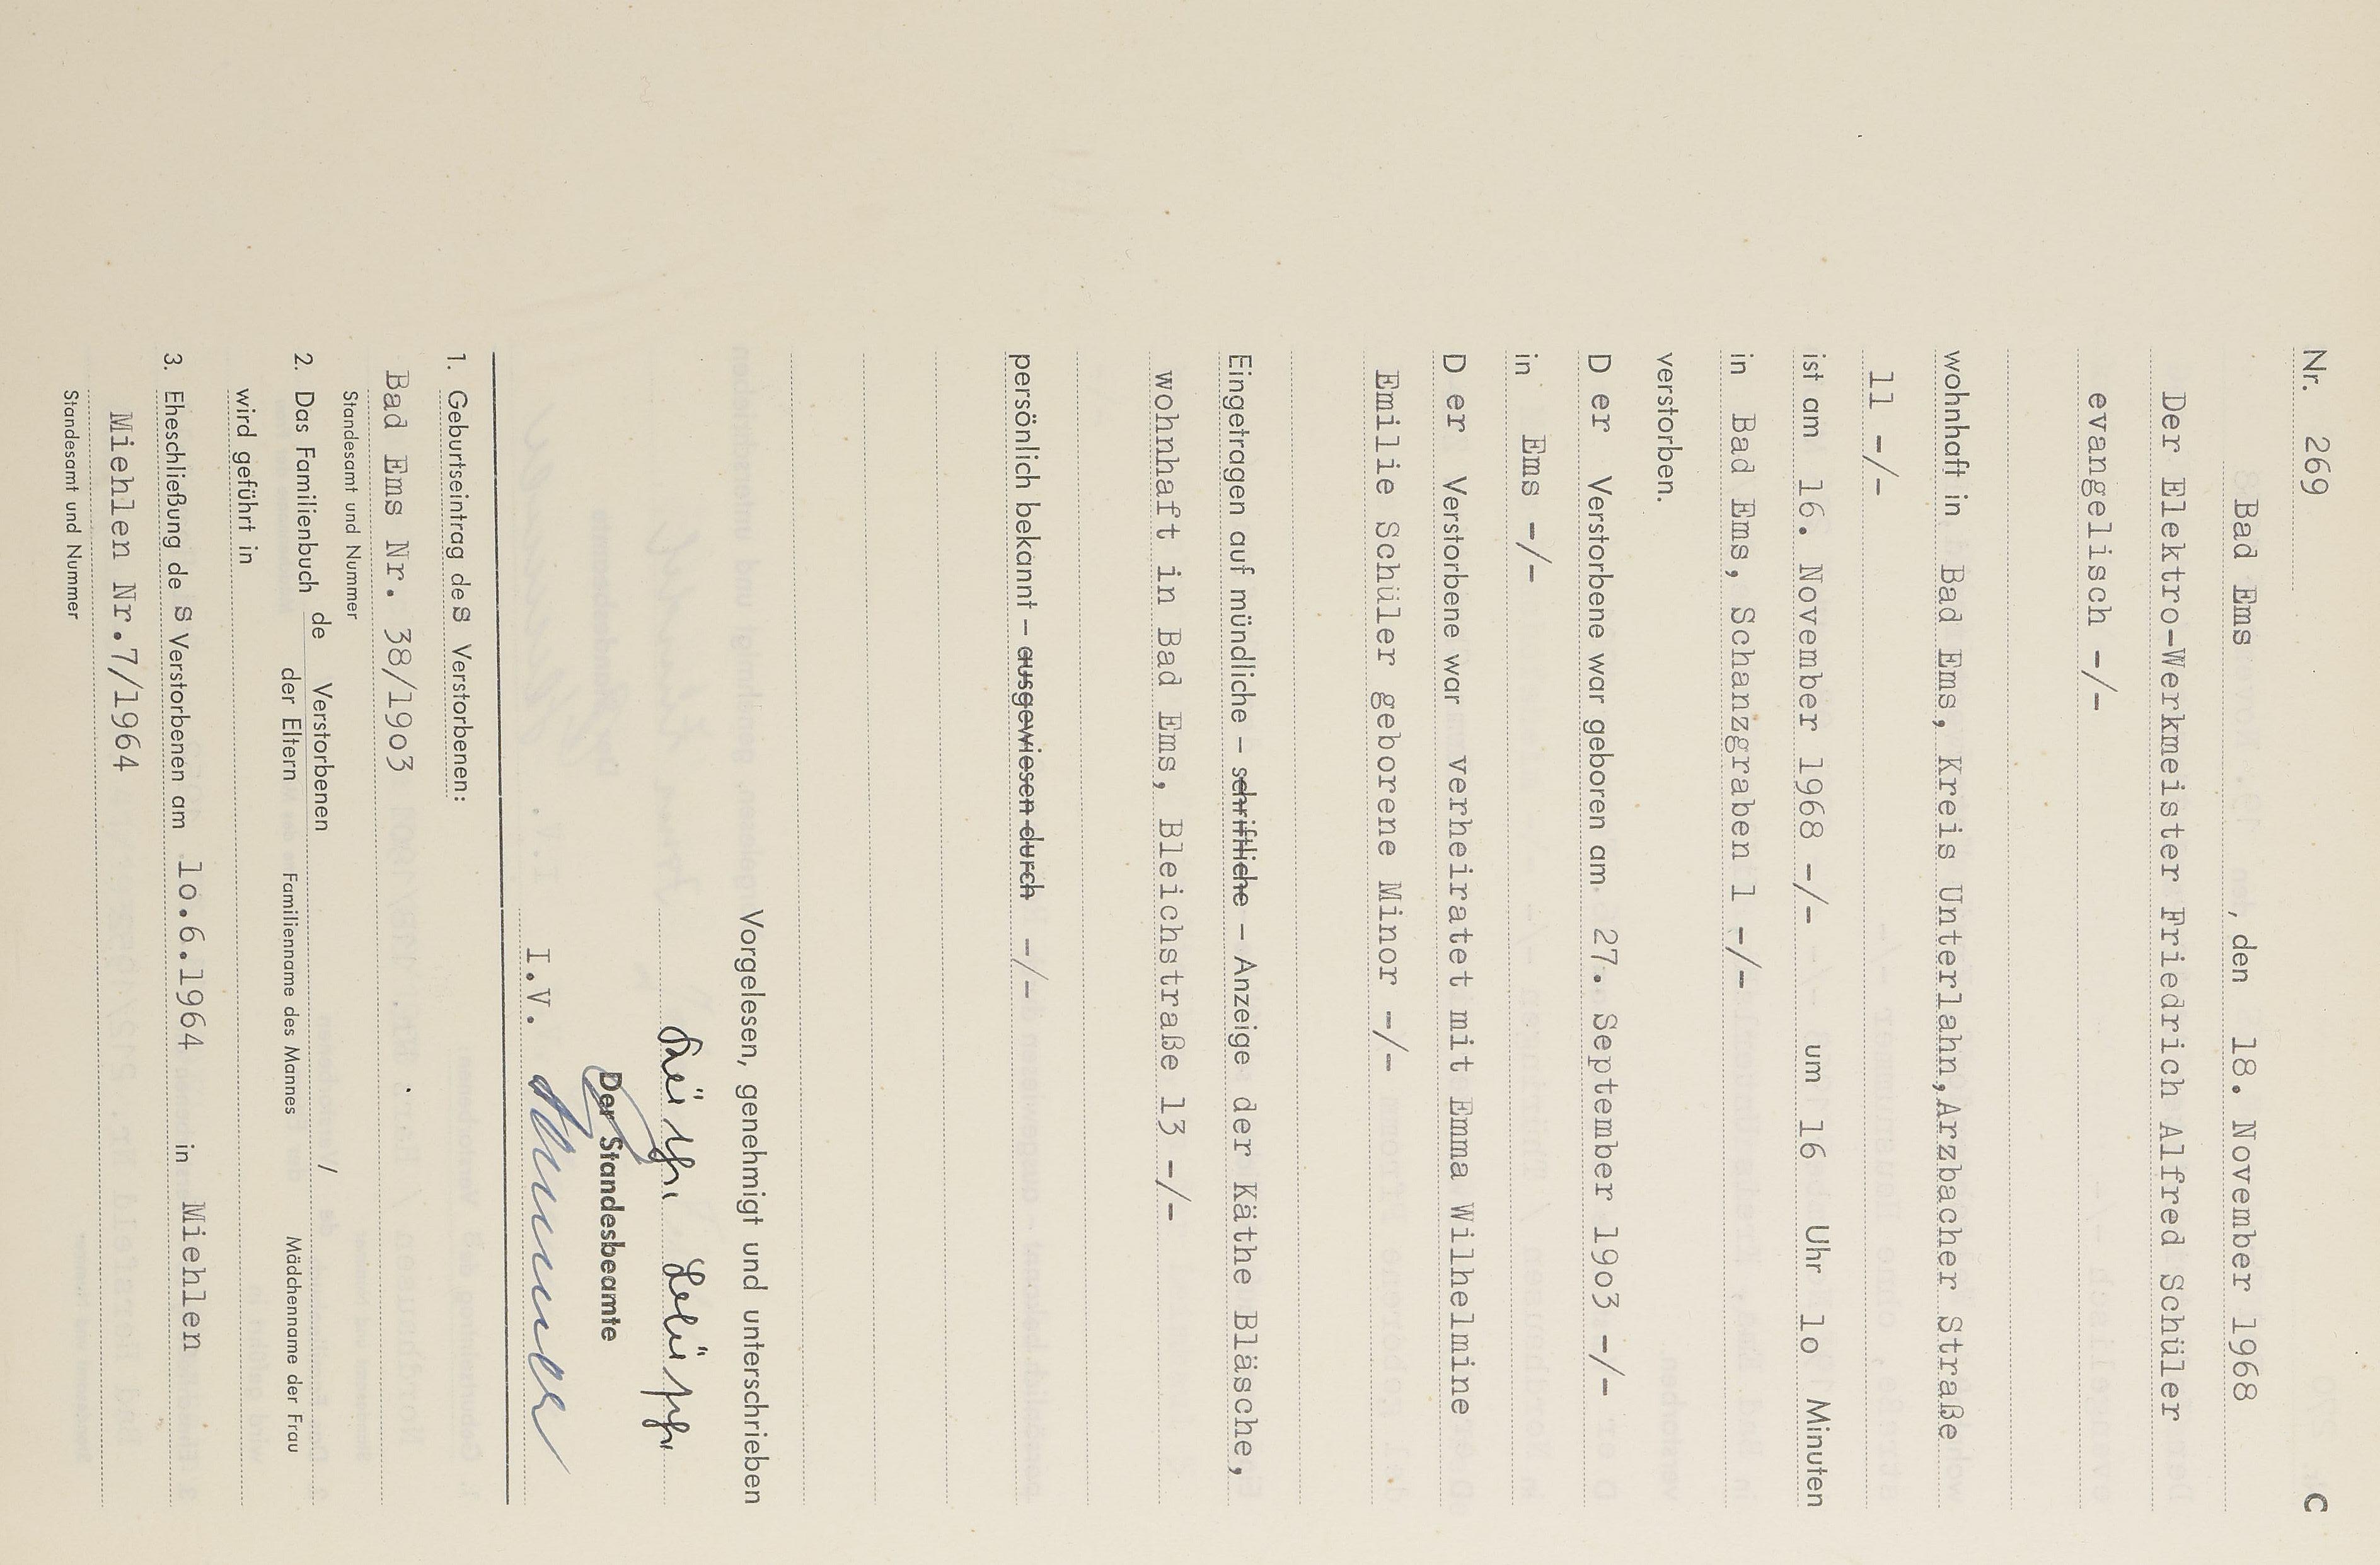 Nr. 269 C
Bad Ems, den 18. November 1968
Der Elektro-Werkmeister Friedrich Alfred Schüler
evangelisch -/-
wohnhaft in Bad Ems, Kreis Unterlahn, Arzbacher Straße
11 -/-
ist am 16. November 1968 -/- um 16 Uhr 1o Minuten
in Bad Ems, Schanzgraben 1 -/-
verstorben.
D er Verstorbene war geboren am 27. September 19o3 -/-
in Ems -/-
D er Verstorbene war verheiratet mit Emma Wilhelmine
Emilie Schüler geborene Minor -/-
Eingetragen auf mündliche – schriftliche – Anzeige der Käthe Bläsche,
wohnhaft in Bad Ems, Bleichstraße 13 -/-
persönlich bekannt – ausgewiesen durch -/-
Vorgelesen, genehmigt und unterschrieben
Der Standesbeamte
I.V.
1. Geburtseintrag des Verstorbenen:
Bad Ems Nr. 38/19o3
Standesamt und Nummer
2. Das Familienbuch de Verstorbenen /
der Eltern Familienname des Mannes Mädchenname der Frau
wird geführt in
3. Eheschließung de s Verstorbenen am 1o.6.1964 in Miehlen
Miehlen Nr.7/1964
Standesamt und Nummer